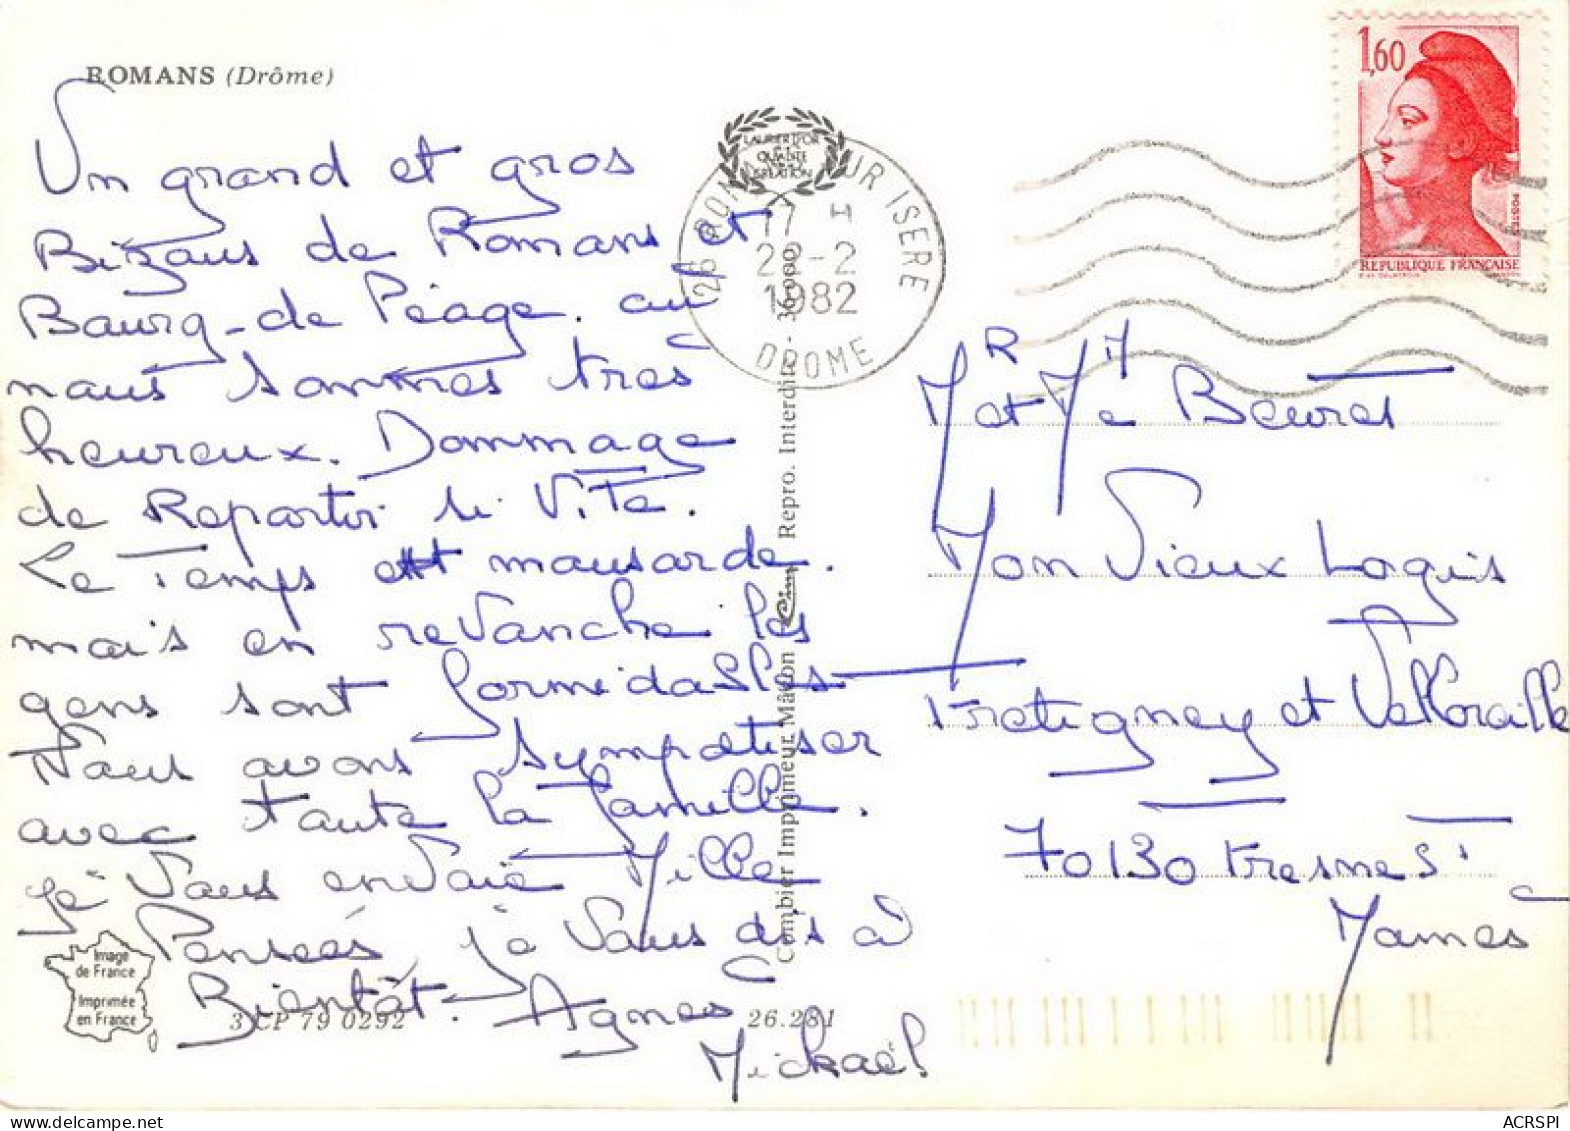 ROMANS (Drôme)
Un grand et gros
Bizous de Romans et
Bourg-de Péage. ou
nous sommes tres
heureux. Dommage
de Repartir si Vite.
Le Temps est mausade.
mais en revanche les
gens sont formidables
Nous avons sympatiser
avec toute la famille.
je vous envoie Mille
Pensées, je vous dis a
Bientôt. Agnes
Mickaël
LAURIER D'OR
QUALITE
CREATION
26 ROMANS SUR ISERE
17 H
22-2
1982
DROME
1,60
POSTES
REPUBLIQUE FRANÇAISE
Mr et Me Beuret
Mon Vieux Logis
Fretigney et Velloreille
70130 Fresne St
Mames
Combier Imprimeur Mâcon Cim Repro. Interdite
Image
de France
Imprimée
en France
3 CP 79 0292
26.281
ACRSPI